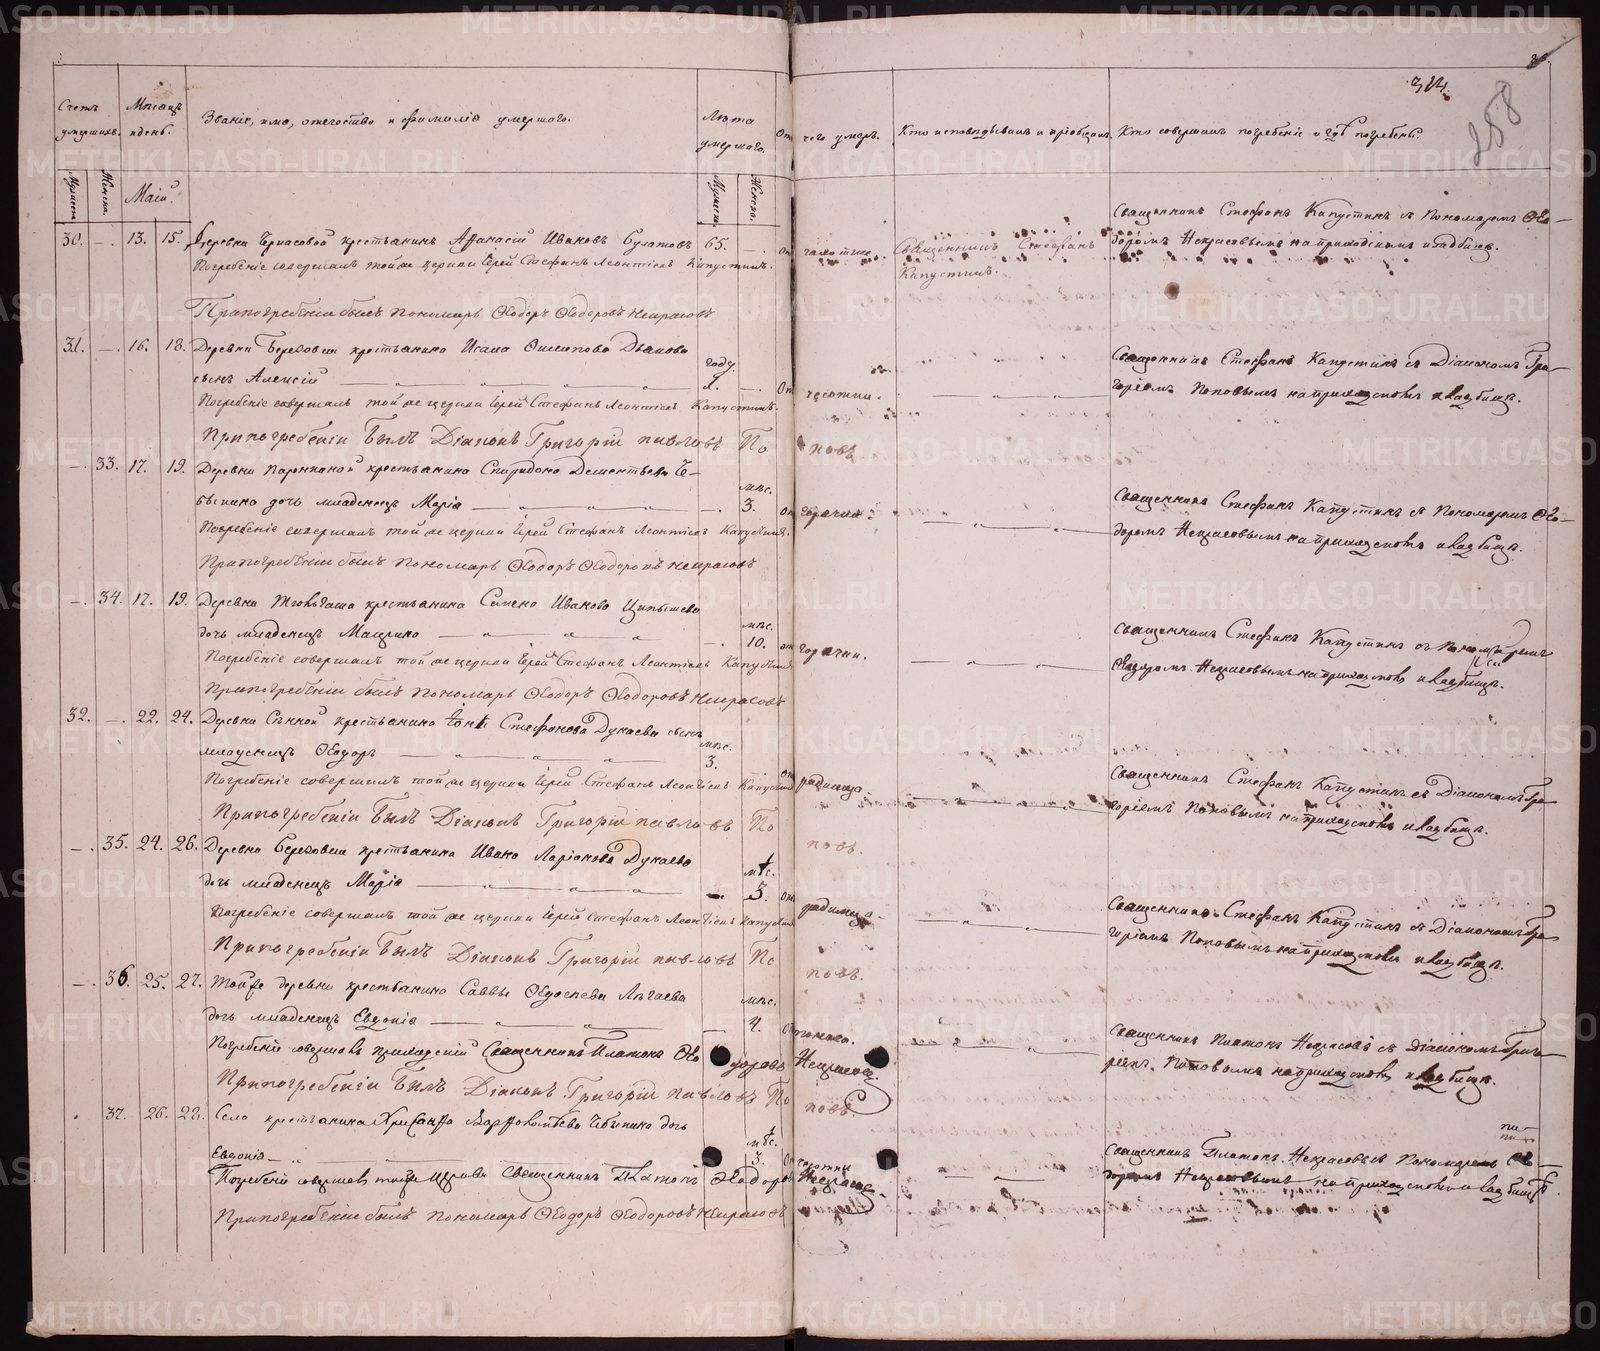 314.
258
Счетъ умершихъ.
Мѣсяцъ и день.
Званіе, имя, отечество и фамилія умершаго.
Лѣта умершаго.
Отъ чего умеръ.
Кто исповѣдывалъ и пріобщалъ.
Кто совершалъ погребеніе и гдѣ погребены.
Мужеска. Женска. Маій. Мужеска. Женска.
30. —. 13. 15. Деревни крестьянинъ Афанасій Ивановъ Булатовъ 65. —. Отъ чахотки. Священникъ Стефанъ Капустинъ.
Священникъ Стефанъ Капустинъ съ Пономаремъ Ѳео-
доромъ Некрасовымъ на приходскомъ кладбищѣ.
Погребеніе совершалъ той же церкви Іерей Стефанъ Леонтіевъ Капустинъ.
При погребеніи былъ пономарь Ѳеодоръ Ѳеодоровъ Некрасовъ
31. —. 16. 18. Деревни Береговой крестьянина Исака Дьякова
сынъ Алексій году 1. —. Отъ чесотки.
Священникъ Стефанъ Капустинъ съ Діакономъ Гри-
горіемъ Поповымъ на приходскомъ кладбищѣ.
Погребеніе совершалъ той же церкви Іерей Стефанъ Леонтіевъ Капустинъ.
При погребеніи Былъ Діаконъ Григорій павловъ Поповъ
—. 33. 17. 19. Деревни крестьянина Спиридона Дементьева Че-
быкина дочь младенецъ Марія —. мѣс. 3. От горячки.
Священникъ Стефанъ Капустинъ съ Пономаремъ Ѳео-
доромъ Некрасовымъ на приходскомъ кладбищѣ.
Погребеніе совершалъ той же церкви Іерей Стефанъ Леонтіевъ Капустинъ.
При погребеніи былъ пономарь Ѳеодоръ Ѳеодоровъ Некрасовъ
—. 34. 17. 19. Деревни крестьянина Семена Иванова
дочь младенецъ —. мѣс. 10. от горячки.
Священникъ Стефанъ Капустинъ съ Пономаремъ
Ѳеодоромъ Некрасовымъ на приходскомъ кладбищѣ.
Погребеніе совершалъ той же церкви Іерей Стефанъ Леонтіевъ Капустинъ
При погребеніи былъ пономарь Ѳеодоръ Ѳеодоровъ Некрасовъ
32. —. 22. 24. Деревни крестьянина Іоны Стефанова Дунаева сынъ
младенецъ Ѳеодоръ мѣс. 3. От родимца
Священникъ Стефанъ Капустинъ съ Діакономъ Гри-
горіемъ Поповымъ на приходскомъ кладбищѣ.
Погребеніе совершалъ той же церкви Іерей Стефанъ Леонтіевъ Капустинъ
При погребеніи Былъ Діаконъ Григорій павловъ Поповъ.
—. 35. 24. 26. Деревни Береговой крестьянина Ивана Ларіонова Дунаева
дочь младенецъ Марія — мѣс. 3. От родимца
Священникъ Стефанъ Капустинъ съ Діакономъ Гри-
горіемъ Поповымъ на приходскомъ кладбищѣ.
Погребеніе совершалъ той же церкви Іерей Стефанъ Леонтіевъ Капустинъ
При погребеніи Былъ Діаконъ Григорій павловъ Поповъ.
—. 36. 25. 27. Той же деревни крестьянина Саввы
дочь младенецъ Евдокія — мѣс. 4. От поноса.
Священникъ Платонъ Некрасовъ съ Діакономъ Григо-
ріемъ Поповымъ на приходскомъ кладбищѣ.
Погребеніе совершалъ приходскій Священникъ Платонъ Ѳеодоровъ Некрасовъ.
При погребеніи Былъ Діаконъ Григорій павловъ Поповъ.
37. 26. 28. Села крестьянина Хрисанфа Чебыкина дочь
Евдокія мѣс. 3. От чесотки
Священникъ Платонъ Некрасовъ съ Пономаремъ Ѳео-
доромъ Некрасовымъ на приходскомъ кладбищѣ.
Погребеніе совершалъ тойже церкви Священникъ Платонъ Ѳеодоровъ Некрасовъ
При погребеніи былъ пономарь Ѳеодоръ Ѳеодоровъ Некрасовъ
METRIKI.GASO-URAL.RU